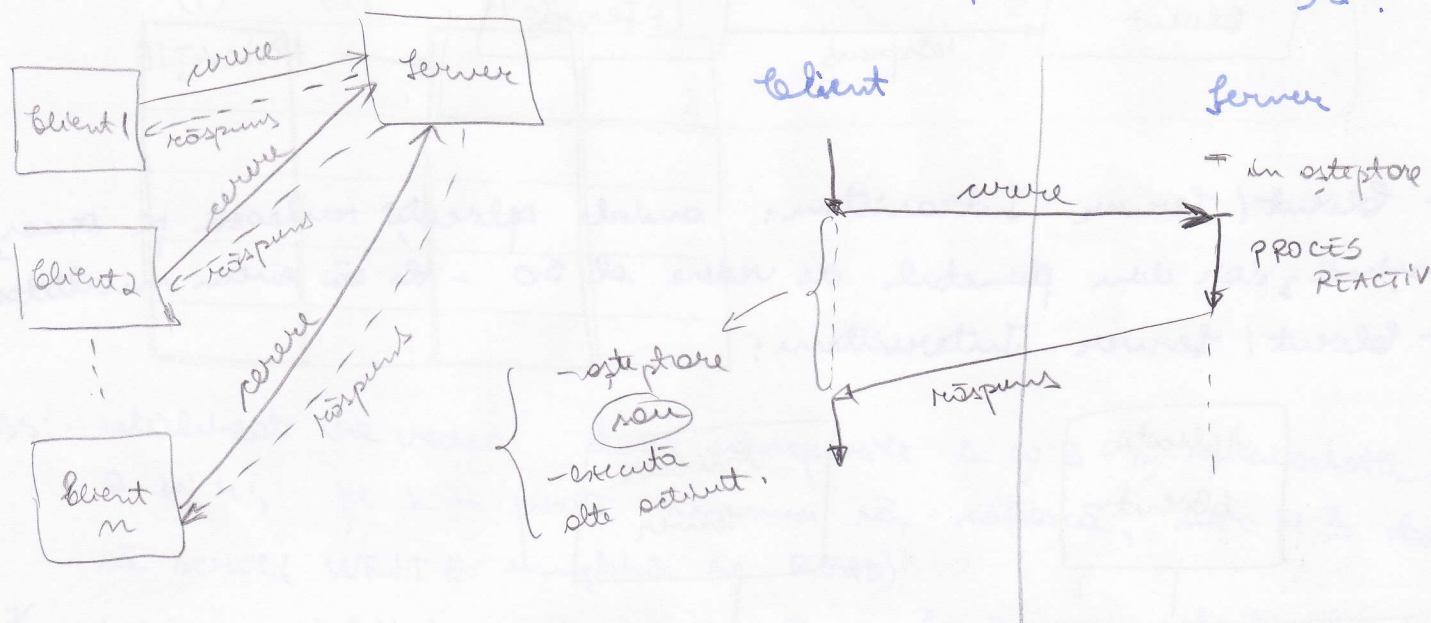 Client 1
cerere
răspuns
Server
cerere
răspuns
Client 2
cerere
răspuns
Client
n
Client
Server
cerere
în așteptare
PROCES
REACTIV
răspuns
- așteptare
sau
- execută
alte activit.